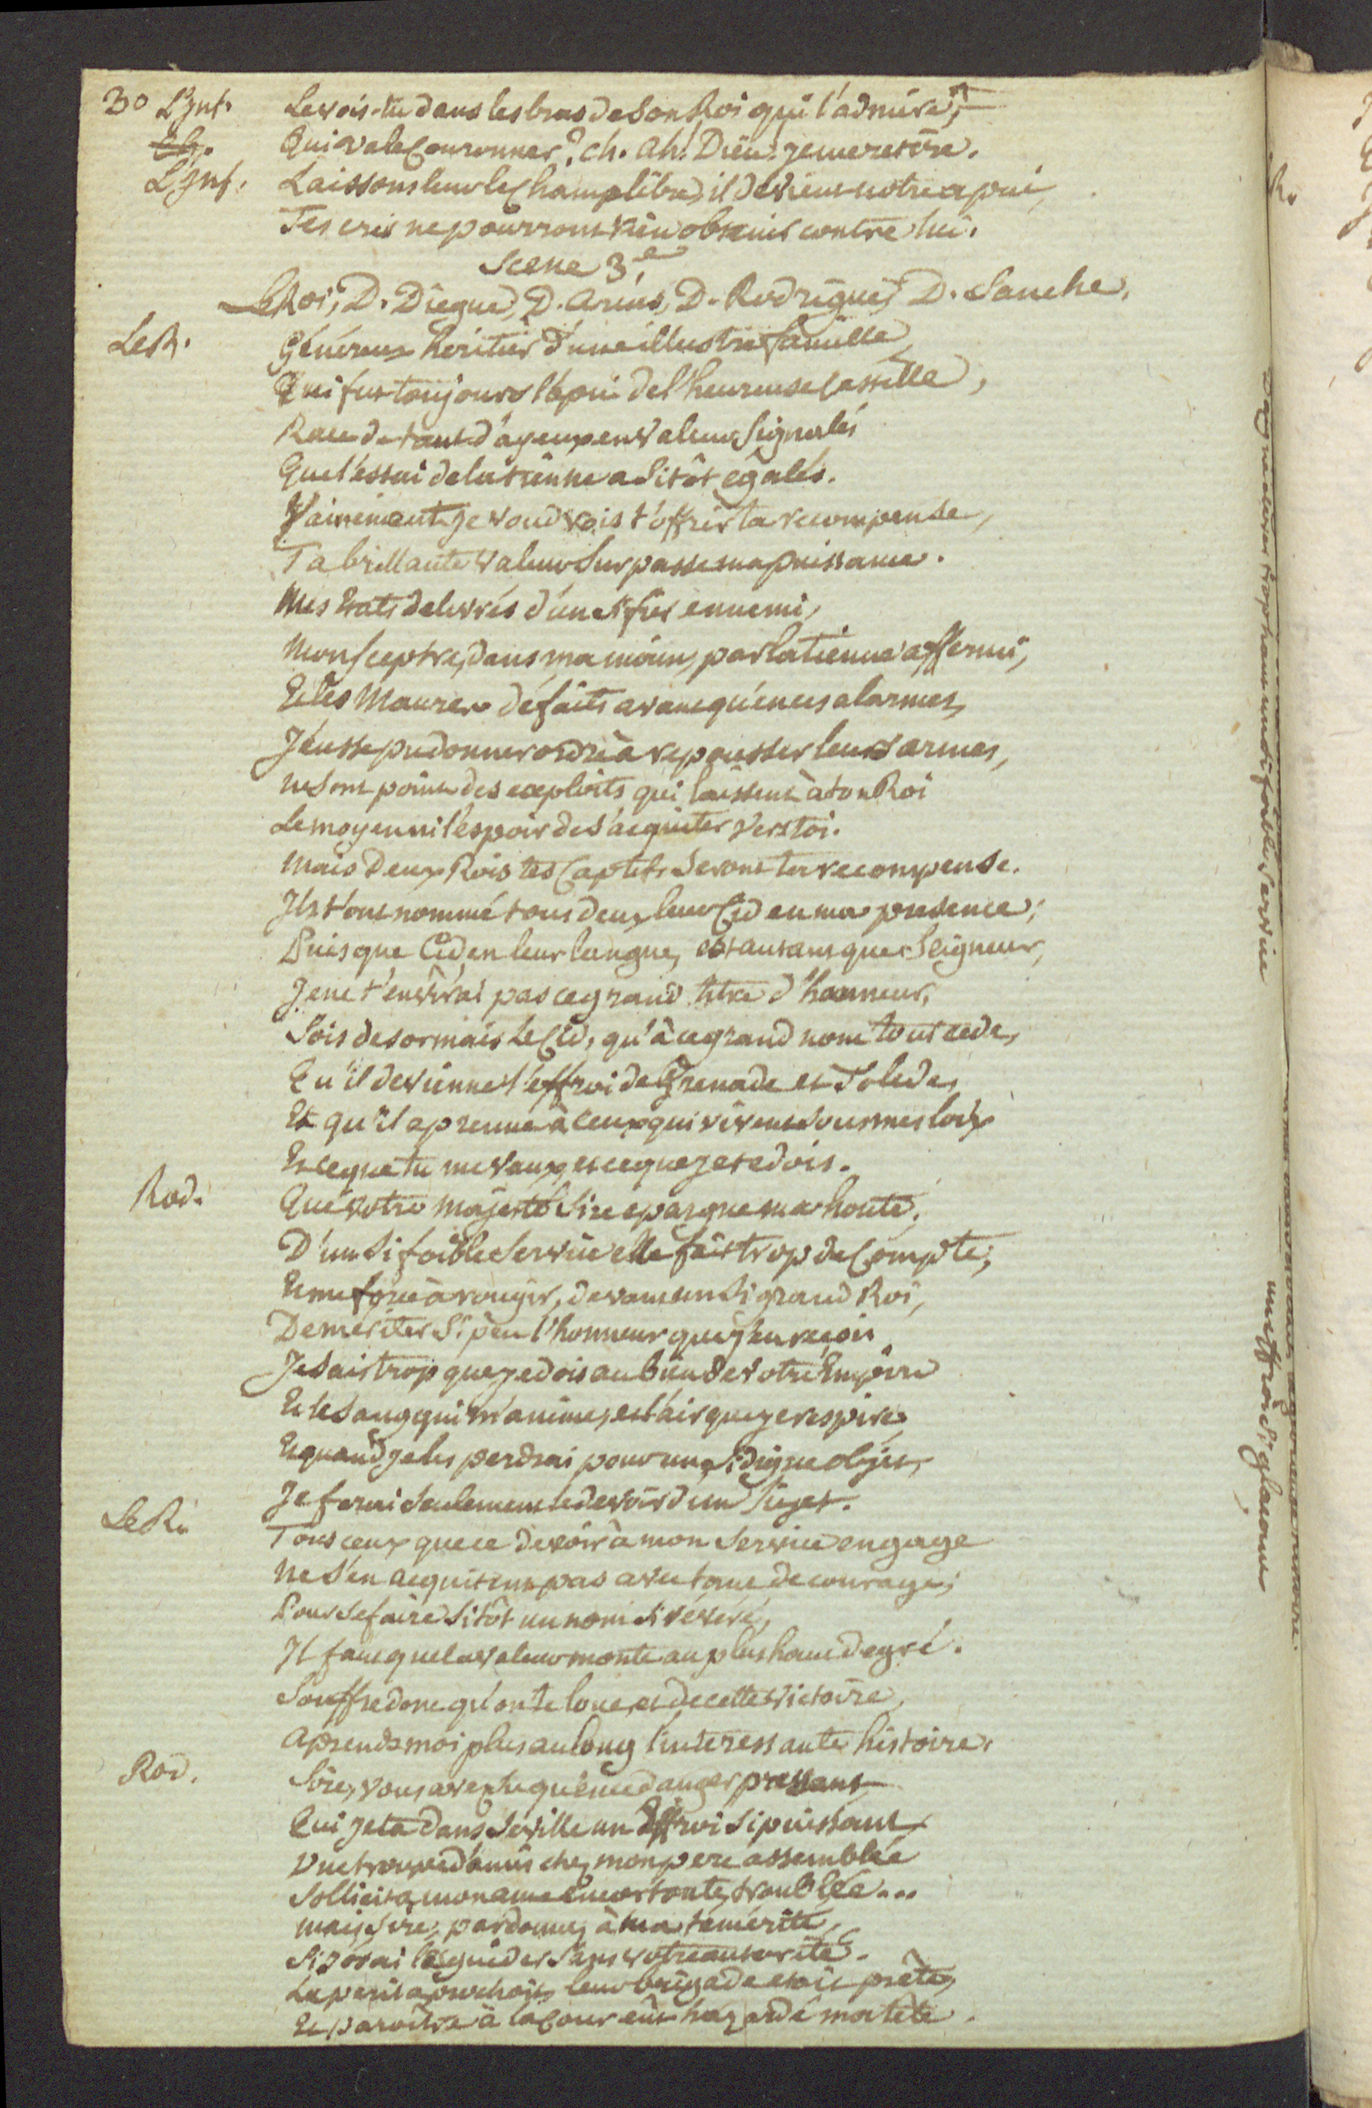 30 L'Inf. Le vois-tu dans les bras de Son Roi qui l'admire,
Ch. Qui va le Couronner? Ch. Ah! Dieu: je me retire.
L'Inf. Laissons leur le Champ libre, il devient notre apui,
Tes cris ne pourront rien obtenir contre lui.
Scene 3.e
Le Roi, D. Diegue, D. Arias, D. Rodrigue, D. Sanche.
Le R. Généreux héritier d'une illustre famille,
Qui fut toujours l'apui de l'heureuse Castille,
Race de tant d'ayeux en valeur Signalés
Que l'essai de la tienne a Sitôt égalés.
Vainement je voudrois t'offrir ta recompense,
Ta brillante valeur Surpasse ma puissance.
Mes Etats delivrés d'un si fier ennemi,
Mon Sceptre, dans ma main, par la tienne affermi,
Et les Maures défaits avant qu'en ces alarmes,
J'eusse pu donner ordre à repousser leurs armes,
Ne Sont point des exploits qui laissent à ton Roi
Le moyen ni l'espoir de S'acquiter vers toi.
Mais deux Rois tes Captifs Seront ta recompense.
Ils t'ont nommé tous deux leur Cid en ma presence;
Puisque Cid en leur langue, est autant que Seigneur,
Je ne t'envîrai pas ce grand titre d'honneur,
Sois desormais Le Cid, qu'à ce grand nom tout cede,
Qu'il devienne l'effroi de Grenade et Tolede,
Et qu'il aprenne à ceux qui vivent Sous mes loix
Et ce que tu me vaux, et ce que je te dois.
Rod. Que votre majesté Sire épargne ma honte,
D'un Si foible Service elle fait trop de Compte,
Et me force à rougir, devant un Si grand Roi,
De mériter Si peu l'honneur que j'en reçoi
Je Sais trop que je dois au bien de votre Empire
Et le Sang qui m'anime, et l'air que je respire,
Et quand je les perdrai pour un Si digne objet,
Je ferai Seulement le devoir d'un Sujet.
Le R. Tous ceux que ce devoir à mon Service engage
Ne S'en acquitent pas avec tant de courage;
Pour Se faire Sitôt un nom Si réveré,
Il faut que la valeur monte au plus haut degré.
Souffre donc qu'on te loue, et de cette victoire,
Aprends moi plus au long l'interessante histoire.
Rod. Sire, vous avez su qu'en ce danger pressant
Qui jeta dans Seville un Effroi Si puissant
Une troupe d'amis chez mon pere assemblée
Sollicita mon ame encor toute troublée...
Mais Sire, pardonnez à ma témérité,
Si j'osai les guider Sans votre autorité.
Le peril aprochoit, leur brigade etoit prête,
Et paroître à la Cour eût hazardé ma tête.
R.
Daignez ... trop haut un Si foible Service
un effroi Si glacant